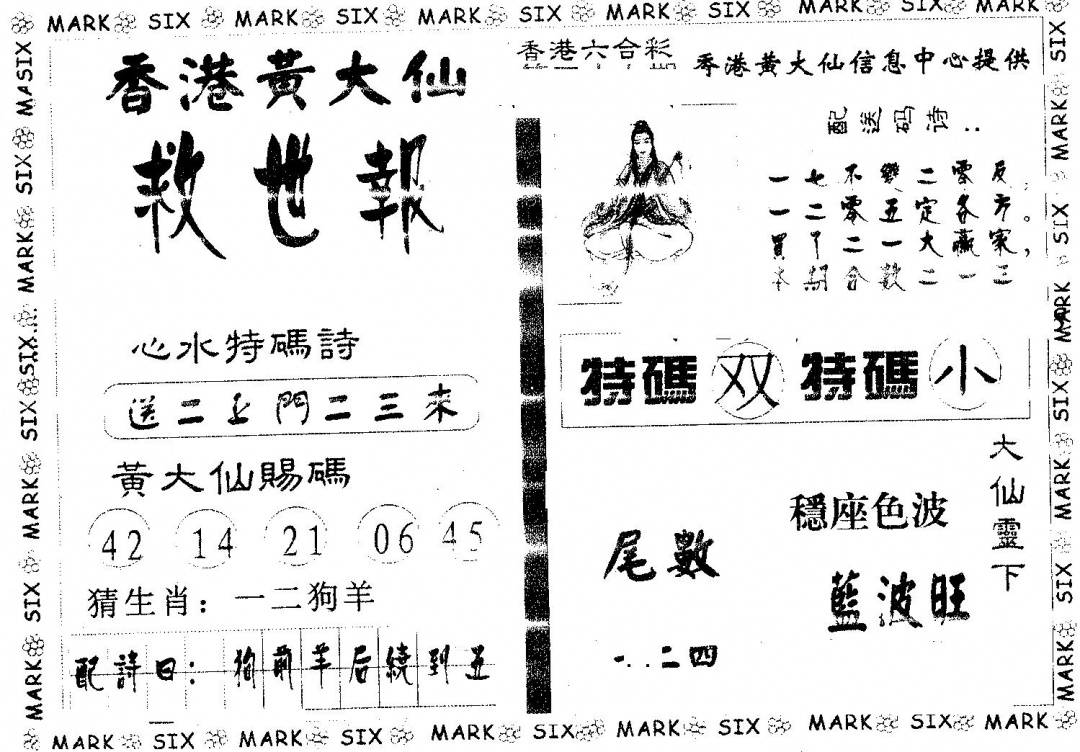 MARK SIX MARK SIX MARK SIX MARK SIX MARK SIX MARK
香港黃大仙
救世報
心水特碼詩
送二上門二三來
黃大仙賜碼
42 14 21 06 45
猜生肖：一二狗羊
配詩曰：狗前羊后繞到五
香港六合彩
香港黃大仙信息中心提供
配送码诗：
一七不變二零反，
一二零五定各方。
買丁二一大贏家，
本期合數二一三
特碼双 特碼小
大仙靈下
穩座色波
藍波旺
尾數
一．二四
MASIX MARK SIX MARK SIX MARK SIX MARK SIX MARK
SIX MARK SIX MARK SIX MARK SIX MARK
MARK SIX MARK SIX MARK SIX MARK SIX MARK SIX MARK